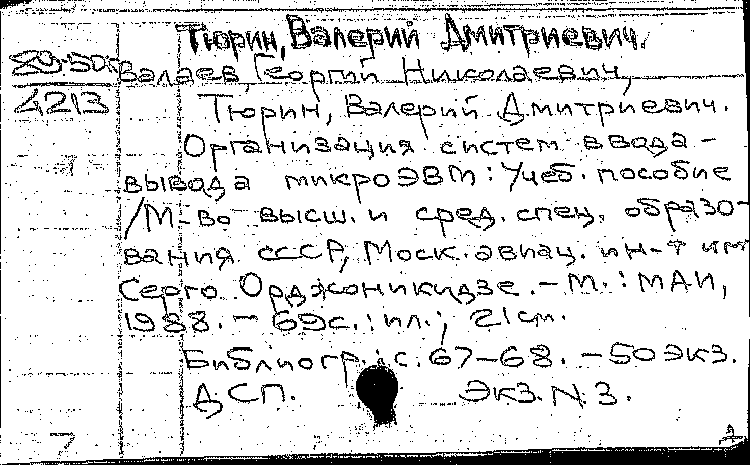 Тюрин, Валерий Дмитриевич.
Валаев, Георгий Николаевич,
4213 Тюрин, Валерий Дмитриевич.
Организация систем ввода-
вывода микроЭВМ: Учеб. пособие
/М-во высш. и сред. спец. образо-
вания СССР, Моск. авиац. ин-т им
Серго Орджоникидзе. - М.: МАИ,
1988. - 69с.: ил.; 21см.
Библиогр.: с. 67-68. - 50 экз.
ДСП. Экз. N 3.
7